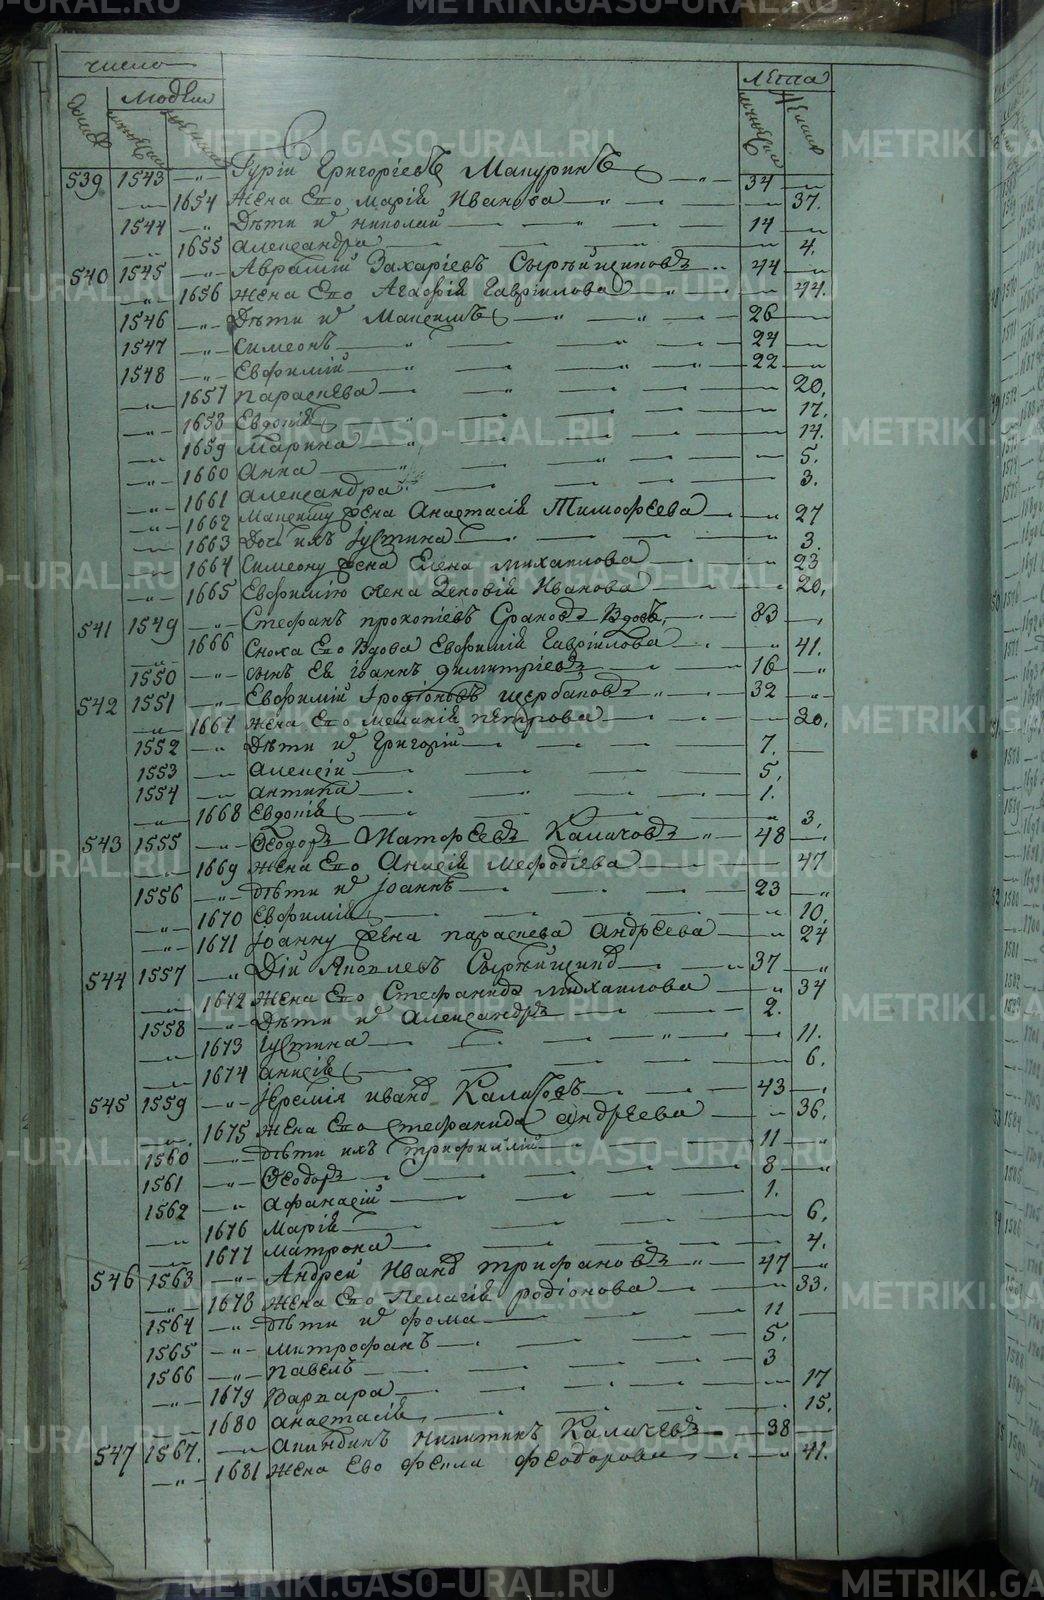 число
людей
лѣта
домовъ
мужеска
женска
мужеска
женска
539 1543 —„— Гурій Григоріевъ Мануринъ —„— 34 —
—„— 1654 Жена Его Марія Иванова —„— 37.
1544 —„— Дѣти их Николай —„— 14 —„—
—„— 1655 Александра — 4.
540 1545 —„— Авраамій Захаріевъ Сырейщиковъ „ 44 —„—
—„— 1656 Жена Его Агафія Гавріилова „ —„— 44.
1546 —„— Дѣти их Максимъ —„— 26 —
1547 —„— Симеонъ —„— 24 —„—
1548 —„— Евфимій —„— 22 —„—
—„— 1657 Параскева —„— 20,
—„— 1658 Евдокія —„— 17.
—„— 1659 Марина —„— 14.
—„— 1660 Анна —„— 5.
—„— 1661 Александра — 3.
—„— 1662 Максиму жена Анастасія Тимофеева —„— 27
—„— 1663 Дочь ихъ Іустина —„— 3.
—„— 1664 Симеону жена Елена Михаилова — 23
—„— 1665 Евфимію жена Зеновія Иванова — 20,
541 1549 —„— Стефанъ Прокопіевъ Вдовъ, — 83 —,
1666 Сноха Его Вдова Евфимія Гавріилова —„— 41.
—„— 1550 —„— сынъ Ея Іоаннъ Димитріевъ — 16 —„—
542 1551 —„— Евфимій Щербаковъ —„— 32 —„—
—„— 1667 Жена Его Меланія Петрова — 30,
1552 —„— Дѣти их Григорій — 7. —
1553 —„— Алексій — 5.
1554 —„— Антипа —„— 1.
—„— 1668 Евдокія — 3,
543 1555 —„— Ѳеодоръ Матфеевъ Калачовъ „ 48 —„—
—„— 1669 Жена Его Анисія Мефодіева — 47
1556 —„— Дѣти их Іоаннъ — 23 —„—
—„— 1670 Евфимія —„— 10,
—„— 1671 Іоанну жена Параскева Андреева —„— 24
544 1557 —„— Дій Яковлевъ Сырейщик —„— 37 —„—
—„— 1672 Жена Его Стефанида Михаилова —„— 34
1558 —„— Дѣти их Александръ — 2.
—„— 1673 Іустина —„— 11.
—„— 1674 Анисія — 6.
545 1559 —„— Іеремія Иванов Калачовъ — 43 —,
—„— 1675 Жена Его Стефанида Андреева —„— 36.
1560 —„— Дѣти ихъ Трифиллій — 11 —„—
1561 —„— Ѳеодоръ — 8 —„—
1562 —„— Афанасій — 1.
—„— 1676 Марія — 6,
—„— 1677 Матрона — 4.
546 1563 —„— Андрей Иванов Трифановъ „ 47 —„—
—„— 1678 Жена Его Пелагія Родіонова —„— 33.
1564 —„— Дѣти их Фома — 11 —
1565 —„— Митрофанъ — 5.
1566 —„— Павелъ — 3
—„— 1679 Варвара —„— 17
—„— 1680 Анастасія — 15.
547 1567. —„— Акиндинъ Никитинъ Калачевъ — 38 —
—„— 1681 Жена Ево Фекла Феодорова —„— 41.
METRIKI.GASO-URAL.RU